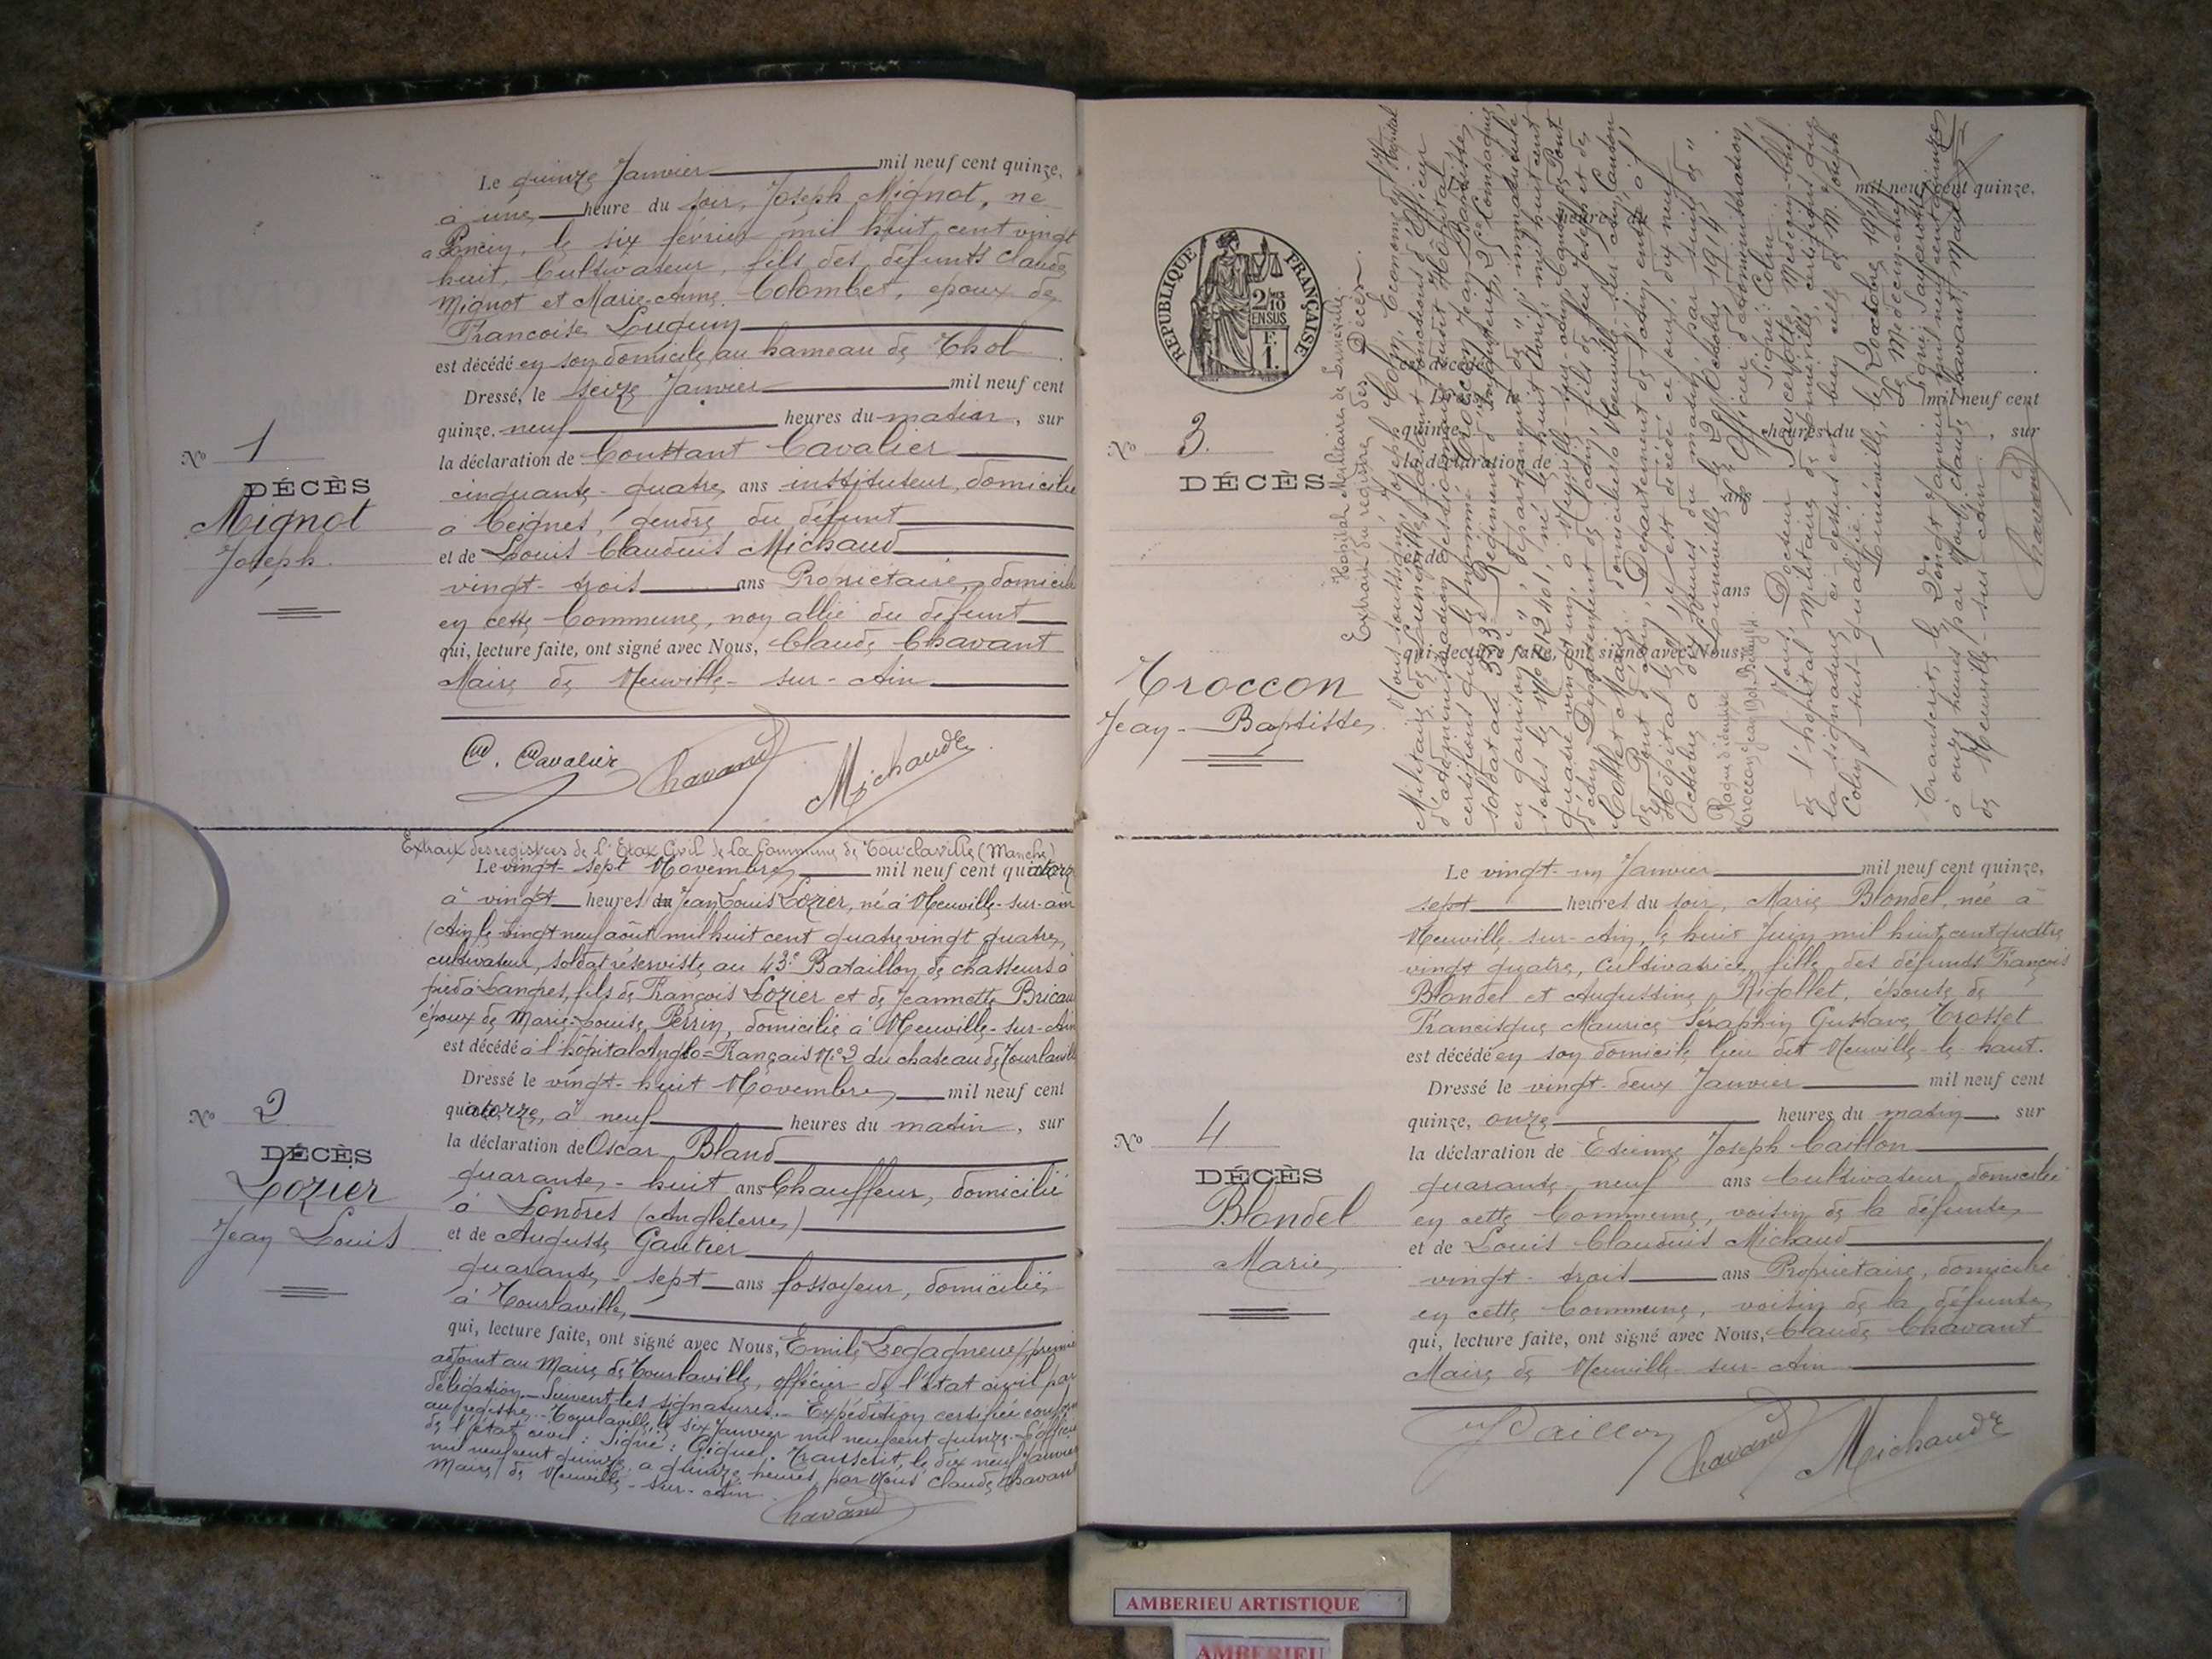 Le quinze Janvier mil neuf cent quinze,
à une heure du soir, Joseph Mignot, né
à Poncin, le six février mil huit cent vingt
huit, Cultivateur, fils des défunts Claude
Mignot et Marie-Anne Colombet, époux de
Francoise Luguin
est décédé en son domicile au hameau de Thol
Dressé, le seize Janvier mil neuf cent
quinze, neuf heures du matin, sur
la déclaration de Constant Cavalier
cinquante-quatre ans instituteur, domicilié
à Ceignes, gendre du défunt
et de Louis Claudius Michaud
vingt-trois ans Propriétaire, domicilié
en cette Commune, non allié du défunt
qui, lecture faite, ont signé avec Nous, Claude Chavant
Maire de Neuville-sur-Ain
C. Cavalier Chavand Michaud
No 1
DÉCÈS
Mignot
Joseph
Extrait des registres de l'Etat Civil de la Commune de Tourlaville (Manche)
Le vingt-sept Novembre mil neuf cent quatorze
à vingt heures du Jean Louis Lozier, né à Neuville-sur-ain
(Ain) le vingt neuf août mil huit cent quatre vingt quatre,
cultivateur, soldat réserviste au 43e Bataillon de chasseurs à
pied à Langres, fils de François Lozier et de Jeannette Bricau
époux de Marie-Louise Perrin, domicilié à Neuville-sur-Ain
est décédé à l'hôpital Anglo-Français No 2 du chateau de Tourlaville
Dressé le vingt-huit Novembre mil neuf cent
quatorze, à neuf heures du matin, sur
la déclaration de Oscar Bland
quarante-huit ans Chauffeur, domicilié
à Londres (Angleterre)
et de Auguste Gautier
quarante-sept ans fossoyeur, domicilié
à Tourlaville,
qui, lecture faite, ont signé avec Nous, Emile Legagneux, premier
adjoint au Maire de Tourlaville, officier de l'état civil par
délégation.- Suivent les signatures.- Expédition certifiée conforme
au registre.- Tourlaville, le six Janvier mil neuf cent quinze.- L'officier
de l'état civil: Signé: Giquel. Transcrit, le dix neuf Janvier
mil neuf cent quinze, à quinze heures, par Nous Claude Chavant
Maire de Neuville-sur-Ain
Chavand
No 2
DÉCÈS
Lozier
Jean Louis
REPUBLIQUE FRANÇAISE
2/10 EN SUS
F. 1.
No 3.
DÉCÈS
Troccon
Jean-Baptiste
mil neuf cent quinze,
est décédé
Dressé, le mil neuf cent
quinze, heures du , sur
la déclaration de
ans
et de
ans
qui, lecture faite, ont signé avec Nous,
Hôpital Militaire de Lunéville.
Extrait du registre des Décès.
Nous soussigné, Joseph Colin, Econome de l'Hôpital
Militaire de Lunéville, faisant fonctions d'Officier
d'administration gestionnaire dudit Hôpital
certifions que le nommé Troccon Jean-Baptiste,
soldat au 333e Régiment d'Infanterie, 21e Compagnie,
en garnison à " , Département de " , immatriculé
sous le No 12401, né le huit Août, mil huit cent
quatre vingt un, à Neuville-sur-Ain, Canton de Pont
d'ain, Département de l'ain, fils de feu Joseph et de
Collet Marie domicilié à Neuville-sur-Ain, Canton
de Pont d'ain, Département de l'ain, entré à l'
Hôpital le " , y est décédé ce jour, dix neuf
Octobre à dix heures du matin, par suite de "
Lunéville le 19 Octobre 1914
L'Officier d'administration,
Signé: Colin
Plaque d'identité
Troccon Jean 1901 Belley 14
Nous, Docteur Saucerotte, Médecin-Chef
de l'hôpital Militaire de Lunéville, certifions que
la signature ci-dessus est bien celle de M. Joseph
Colin sus-qualifié.
Lunéville, le 20 octobre 1914
Le Médecin-chef,
Signé: Saucerotte
Transcrit, le Vingt Janvier mil neuf cent quinze
à onze heures par Nous, Claude Chavant, Maire
de Neuville-sur-Ain
Chavand
Le vingt-un Janvier mil neuf cent quinze,
sept heures du soir, Marie Blondel, née à
Neuville-sur-Ain, le huit Juin mil huit cent quatre
vingt quatre, Cultivatrice, fille des défunts François
Blondel et Augustine Rigollet, épouse de
Francisque Maurice Séraphin Gustave Trosset
est décédé en son domicile, lieu dit Neuville-le-haut.
Dressé le vingt-deux Janvier mil neuf cent
quinze, onze heures du matin, sur
la déclaration de Etienne Joseph Caillon
quarante-neuf ans Cultivateur, domicilié
en cette Commune, voisin de la défunte
et de Louis Claudius Michaud
vingt-trois ans Propriétaire, domicilié
en cette Commune, voisin de la défunte
qui, lecture faite, ont signé avec Nous, Claude Chavant
Maire de Neuville-sur-Ain
Caillon Chavand Michaud
No 4
DÉCÈS
Blondel
Marie
AMBERIEU ARTISTIQUE
AMBERIEU